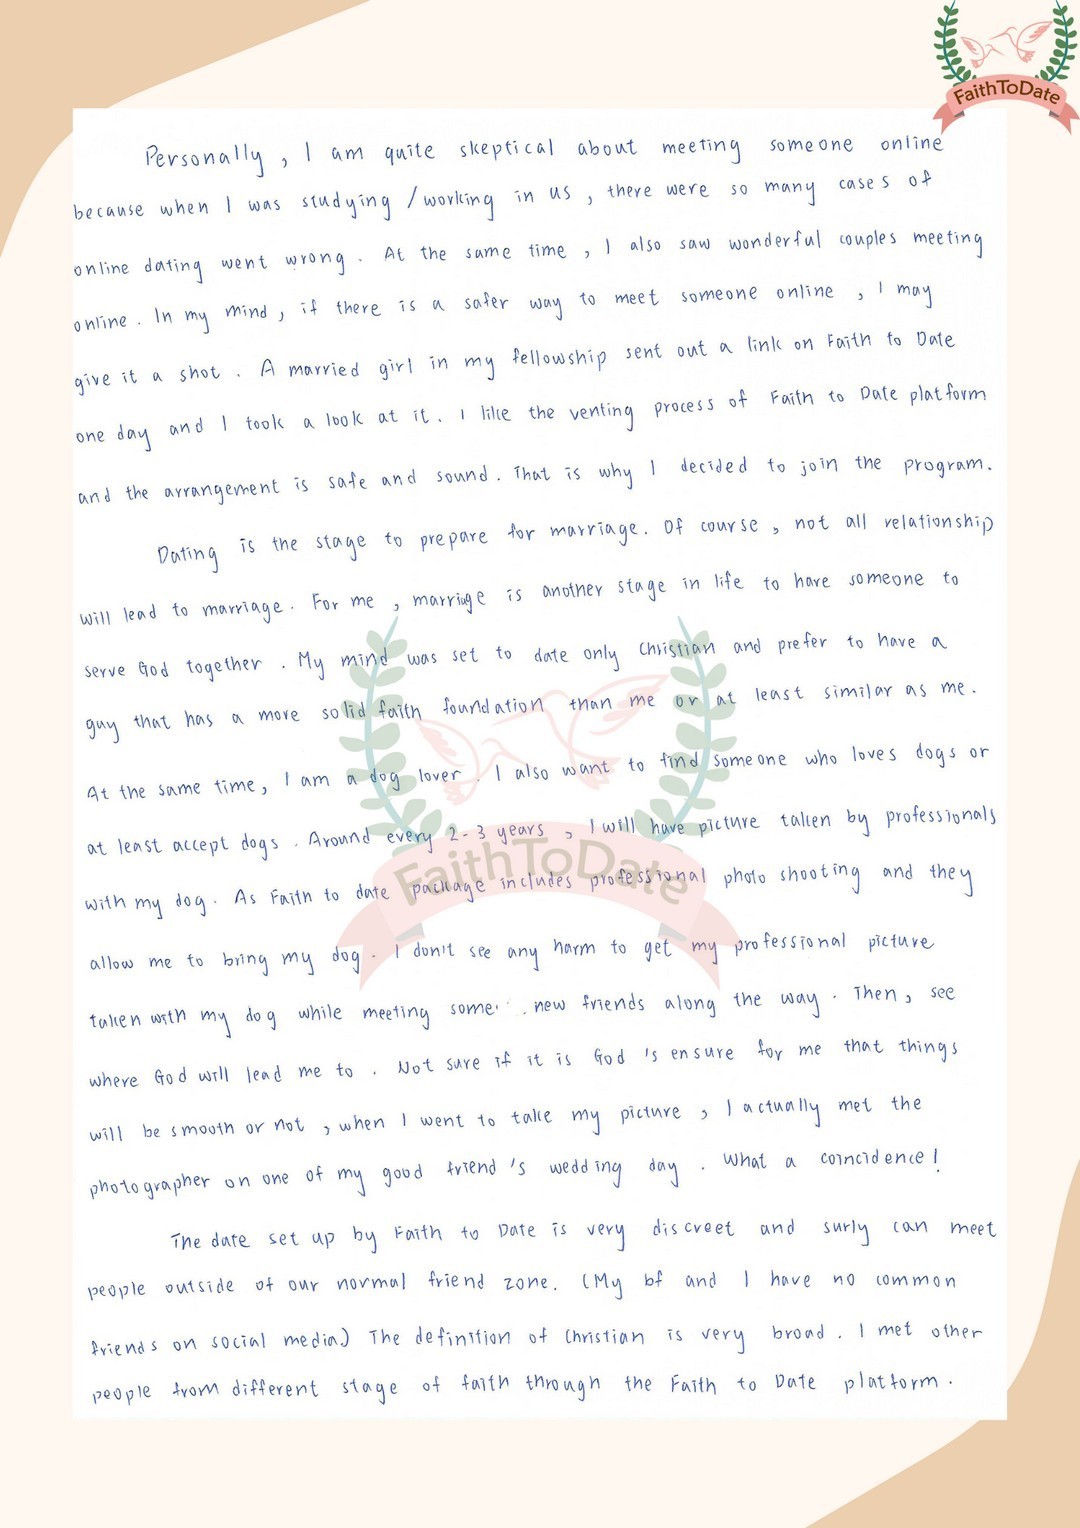 FaithToDate
Personally, I am quite skeptical about meeting someone online
because when I was studying / working in us, there were so many cases of
online dating went wrong. At the same time, I also saw wonderful couples meeting
online. In my mind, if there is a safer way to meet someone online, I may
give it a shot. A married girl in my fellowship sent out a link on Faith to Date
one day and I took a look at it. I like the venting process of Faith to Date platform
and the arrangement is safe and sound. That is why I decided to join the program.
Dating is the stage to prepare for marriage. Of course, not all relationship
will lead to marriage. For me, marriage is another stage in life to have someone to
serve God together. My mind was set to date only Christian and prefer to have a
guy that has a more solid faith foundation than me or at least similar as me.
At the same time, I am a dog lover. I also want to find someone who loves dogs or
at least accept dogs. Around every 2-3 years, I will have picture taken by professionals
with my dog. As Faith to date package includes professional photo shooting and they
FaithToDate
allow me to bring my dog. I don't see any harm to get my professional picture
taken with my dog while meeting some new friends along the way. Then, see
where God will lead me to. Not sure if it is God's ensure for me that things
will be smooth or not, when I went to take my picture, I actually met the
photographer on one of my good friend's wedding day. What a coincidence!
The date set up by Faith to Date is very discreet and surly can meet
people outside of our normal friend zone. (My bf and I have no common
friends on social media) The definition of Christian is very broad. I met other
people from different stage of faith through the Faith to Date platform.